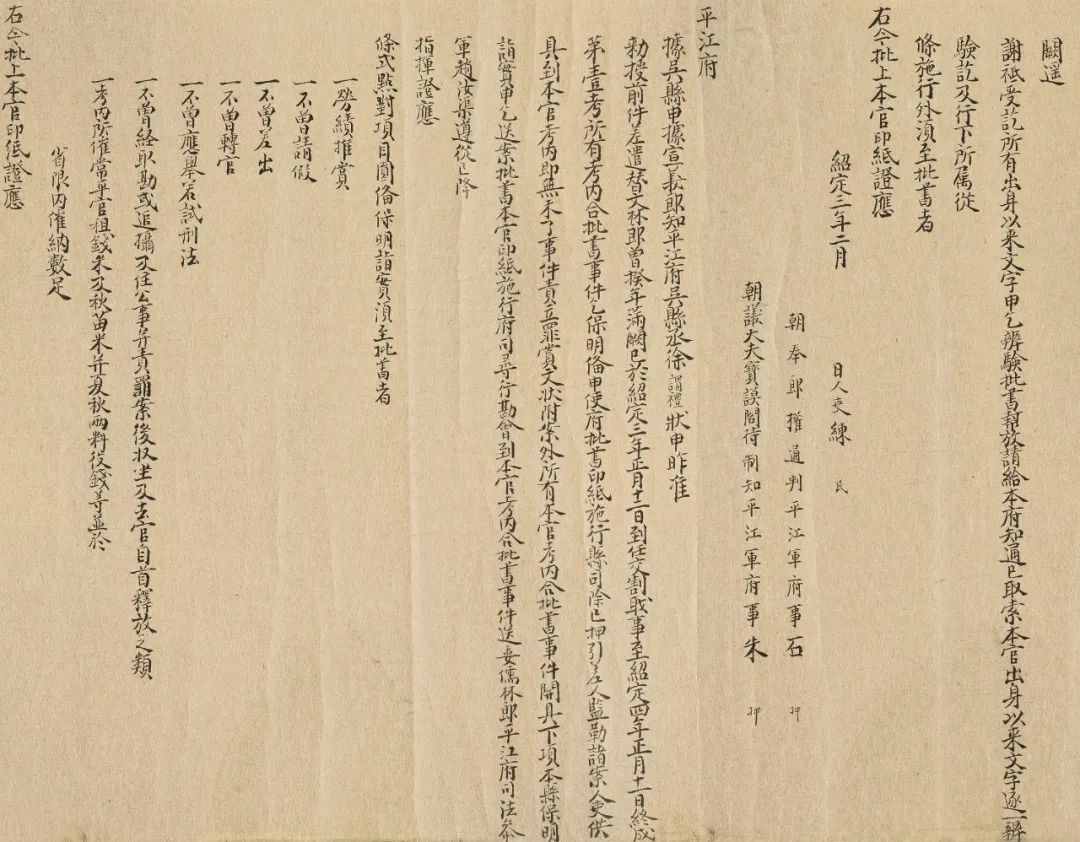 闕遥
謝祗受訖所有出身以来文字申乞辨驗批書幫放請給本府知通已取索本官出身以来文字逐一辨
驗訖及行下所属從
條施行外湏至批書者
右今批上本官印紙證應
紹定三年二月 日人吏練 民
朝奉郎權通判平江軍府事石 押
朝議大夫寶謨閣待制知平江軍府事朱 押
平江府
據吴縣申據宣義郎知平江府吴縣丞徐謂禮狀申昨准
勑授前件差遣替文林郎曾揆年滿闕已於紹定三年正月十二日到任交割職事至紹定四年正月十一日終成
第壹考所有考内合批書事件乞保明備申使府批書印紙施行縣司除已押引差人監勒諸案人吏供
具到本官考内即無未了事件責立罪賞文狀附案外所有本官考内合批書事件開具下項本縣保明
詣實申乞送案批書本官印紙施行府司尋行勘會到本官考内合批書事件送委儒林郎平江府司法叅
軍趙汝㮚遵從已降
指揮證應
條式點對項目圓備保明詣實湏至批書者
一勞績推賞
一不曽請假
一不曽差出
一不曽轉官
一不曽應舉若試刑法
一不曽經取勘或追攝及住公事并責罰案後収坐及去官自首釋放之類
一考内所催常平官租錢米及秋苗米并夏秋兩料役錢等並於
省限内催納數足
右今批上本官印紙證應